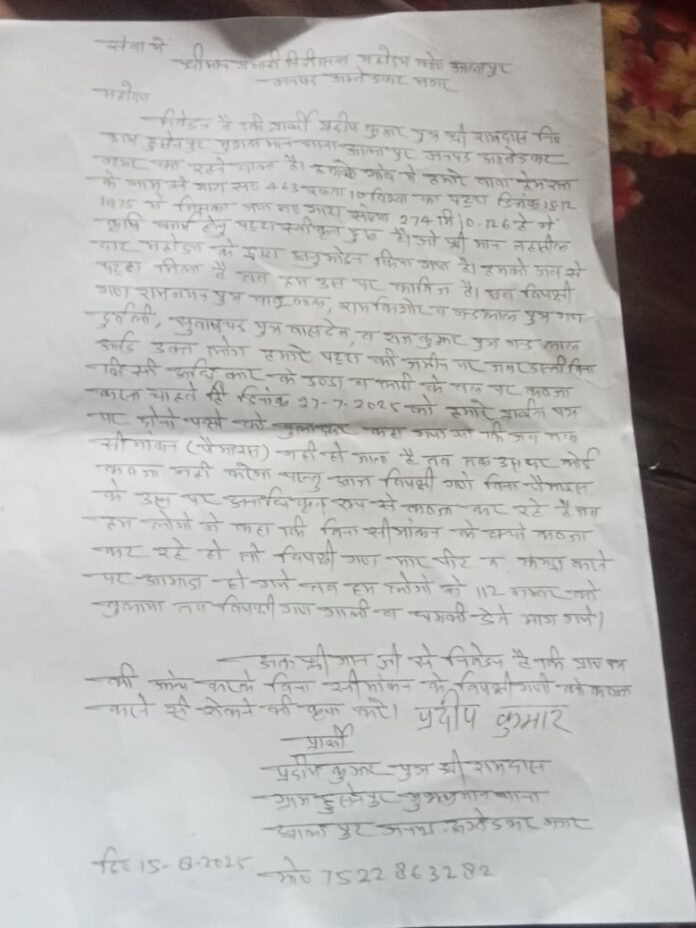 सेवा में
श्रीमान प्रभारी निरीक्षक महोदय आलापुर
जनपद अम्बेडकर नगर
महोदय
निवेदन है कि प्रार्थी प्रदीप कुमार पुत्र श्री रामदास नि०
ग्राम हुसेनपुर थाना आलापुर जनपद अम्बेडकर
नगर का रहने वाला है। हमारे गाँव में हमारे बाबा प्रेमराज
के नाम से गाटा सं० 463 रकबा 10 विस्वा का पट्टा दिनांक 15.12
1975 में जिसका नया गाटा संख्या 274 मि० / 0.126 हे० में
कृषि कार्य हेतु पट्टा स्वीकृत हुआ है। जो श्रीमान तहसील
दार महोदय के द्वारा अनुमोदन किया गया है। हमको जब से
पट्टा मिला है तब हम उस पर काबिज है। अब विपक्षी
गण पुत्र लाल, राम किशोर व नन्दलाल पुत्र गण
सुबाषचन्द्र पुत्र बासदेव, व राम कुमार पुत्र नन्दलाल
आदि उक्त लोग हमारे पट्टा की जमीन पर जबरदस्ती बिना
किसी अधिकार के डण्डा व लाठी के बल पर कब्जा
करना चाहते है दिनांक 27-7-2025 को हमारे प्रार्थना पत्र
पर दोनो पक्षो को बुलाकर कहा गया था कि जब तक
सीमांकन (पैमाइस) नही हो जाता है तब तक उस पर कोई
कब्जा नही करेगा परन्तु आज विपक्षी गण बिना पैमाइस
के उस पर अनाधिकृत रूप से कब्जा कर रहे है जब
हम लोगो ने कहा कि बिना सीमांकन के क्यो कब्जा
कर रहे हो तो विपक्षी गण मार पीट व झगड़ा करने
पर आमादा हो गये तब हम लोगो ने 112 नम्बर को
बुलाया तब विपक्षी गण गाली व धमकी देते भाग गये।
अतः श्रीमान जी से निवेदन है कि प्रा० पत्र
की जाँच करके बिना सीमांकन के विपक्षी गणो को कब्जा
करने से रोकने की कृपा करें। प्रदीप कुमार
प्रार्थी
प्रदीप कुमार पुत्र श्री रामदास
ग्राम हुसेनपुर थाना
आलापुर जनपद अम्बेडकर नगर
दि० 15-8-2025 मो० 7522863282